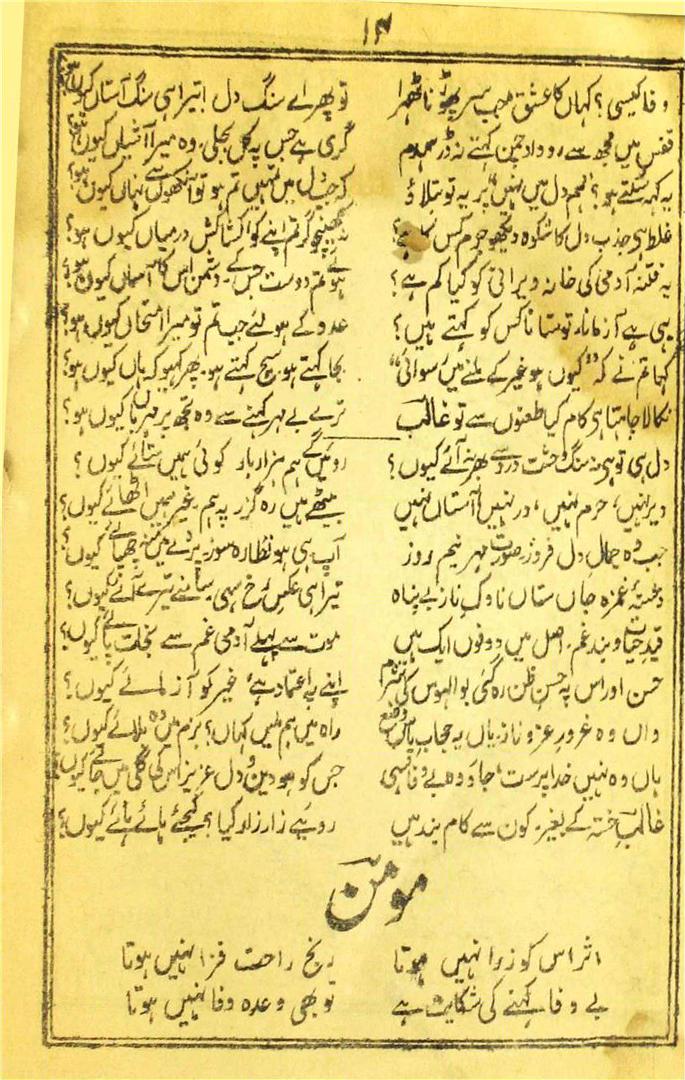 ۱۳
وفا کیسی؟ کہاں کا عشق جب سر پھوڑنا ٹھہرا تو پھر اے سنگ دل! تیرا ہی سنگ آستاں کیوں ہو؟
قفس میں مجھ سے رودادِ چمن کہتے نہ ڈر ہمدم گری ہے جس پہ کل بجلی۔ وہ میرا آشیاں کیوں ہو؟
یہ کہہ سکتے ہو؟ "ہم دل میں نہیں" پر یہ تو بتلاؤ کہ جب دل میں تمہیں تم ہو تو آنکھوں سے نہاں کیوں ہو؟
غلط ہی جذب دل کا شکوہ دیکھو جرم کس کا ہے؟ نہ کھینچو گر تم اپنے کو کشاکش درمیاں کیوں ہو؟
یہ فتنہ آدمی کی خانہ ویرانی کو کیا کم ہے؟ ہوئے تم دوست جس کے۔ دشمن اس کا آسماں کیوں ہو؟
یہی ہے آزمانا۔ تو ستانا کس کو کہتے ہیں؟ عدو کے ہو لئے جب تم تو میرا امتحاں کیوں ہو؟
کہا تم نے کہ "کیوں ہو غیر کے ملنے میں رسوائی" بجا کہتے ہو سچ کہتے ہو۔ پھر کہیو کہ ہاں کیوں ہو؟
نکالا چاہتا ہی کام کیا طعنوں سے تو غالبؔ ترے بے مہر کہنے سے وہ تجھ پر مہرباں کیوں ہو؟
دل ہی تو ہی نہ سنگ و خشت درد سے بھر نہ آئے کیوں؟ روئیں گے ہم ہزار بار کوئی ہمیں ستائے کیوں؟
دیر نہیں، حرم نہیں، در نہیں آستاں نہیں بیٹھے ہیں رہ گزر پہ ہم۔ غیر ہمیں اٹھائے کیوں؟
جب وہ جمالِ دل فروز۔ صورت مہر نیم روز آپ ہی ہو نظارہ سوز۔ پردے میں منہ چھپائے کیوں؟
دشنۂ غمزہ جاں ستاں ناوکِ ناز بے پناہ تیرا ہی عکسِ رخ سہی۔ سامنے تیرے آئے کیوں؟
قیدِ حیات و بند غم۔ اصل میں دونوں ایک ہیں موت سے پہلے آدمی غم سے نجات پائے کیوں؟
حسن اور اس پہ حسنِ ظن رہ گئی بوالہوس کی شرم اپنے پہ اعتماد ہے، غیر کو آزمائے کیوں؟
واں وہ غرورِ عز و ناز۔ یاں یہ حجابِ پاس وضع راہ میں ہم ملیں کہاں؟ بزم میں وہ بلائے کیوں؟
ہاں وہ نہیں خدا پرست، جاؤ وہ بے وفا سہی جس کو ہو دین و دل عزیز اس کی گلی میں جائے کیوں؟
غالبِؔ خستہ کے بغیر۔ کون سے کام بند ہیں روئیے زار زار کیا؟ کیجئے ہائے ہائے کیوں؟
مومنؔ
اثر اس کو ذرا نہیں ہوتا رنج راحت فزا نہیں ہوتا
بے وفا کہنے کی شکایت ہے تو بھی وعدہ وفا نہیں ہوتا